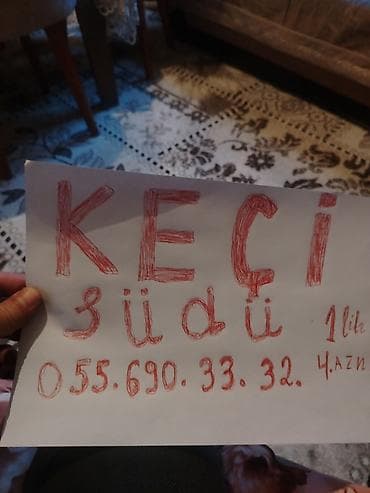 KEÇİ
südü
1 lit
055.690.33.32.
4.AZN